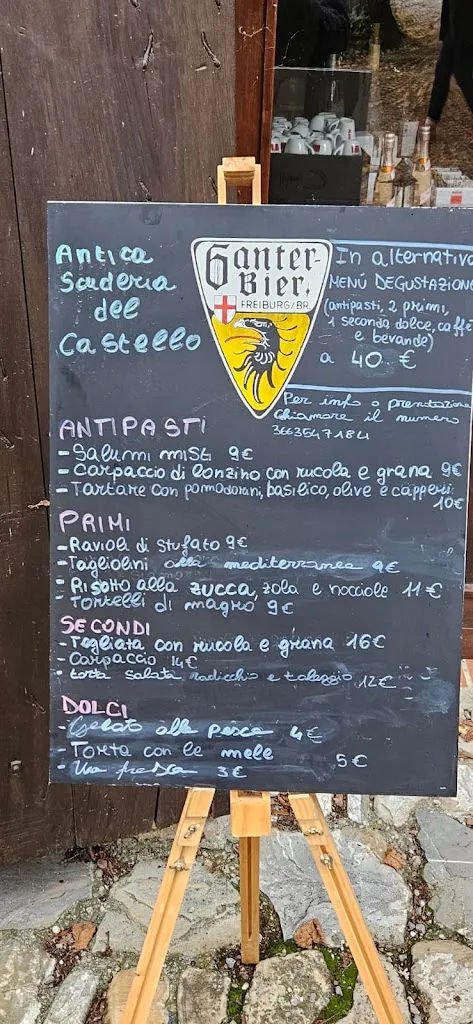 Antica
Scuderia
del
Castello
Ganter-
Bier.
FREIBURG/BR.
In alternativa
MENÚ DEGUSTAZIONE
(antipasti, 2 primi,
1 secondo dolce, caffè
e bevande)
a 40 €
Per info o prenotazione
chiamare il numero
3663547184
ANTIPASTI
- Salumi misti 9€
- Carpaccio di lonzino con rucola e grana 9€
- Tartare con pomodorini, basilico, olive e capperi
10€
PRIMI
- Ravioli di stufato 9€
- Tagliolini alla mediterranea 9€
- Risotto alla zucca, zola e nocciole 11€
- Tortelli di magro 9€
SECONDI
- Tagliata con rucola e grana 16€
- Carpaccio 14€
- torta salata radicchio e taleggio 12€
DOLCI
- Gelato alla pesca 4€
- Torta con le mele 5€
- Uva fresca 3€